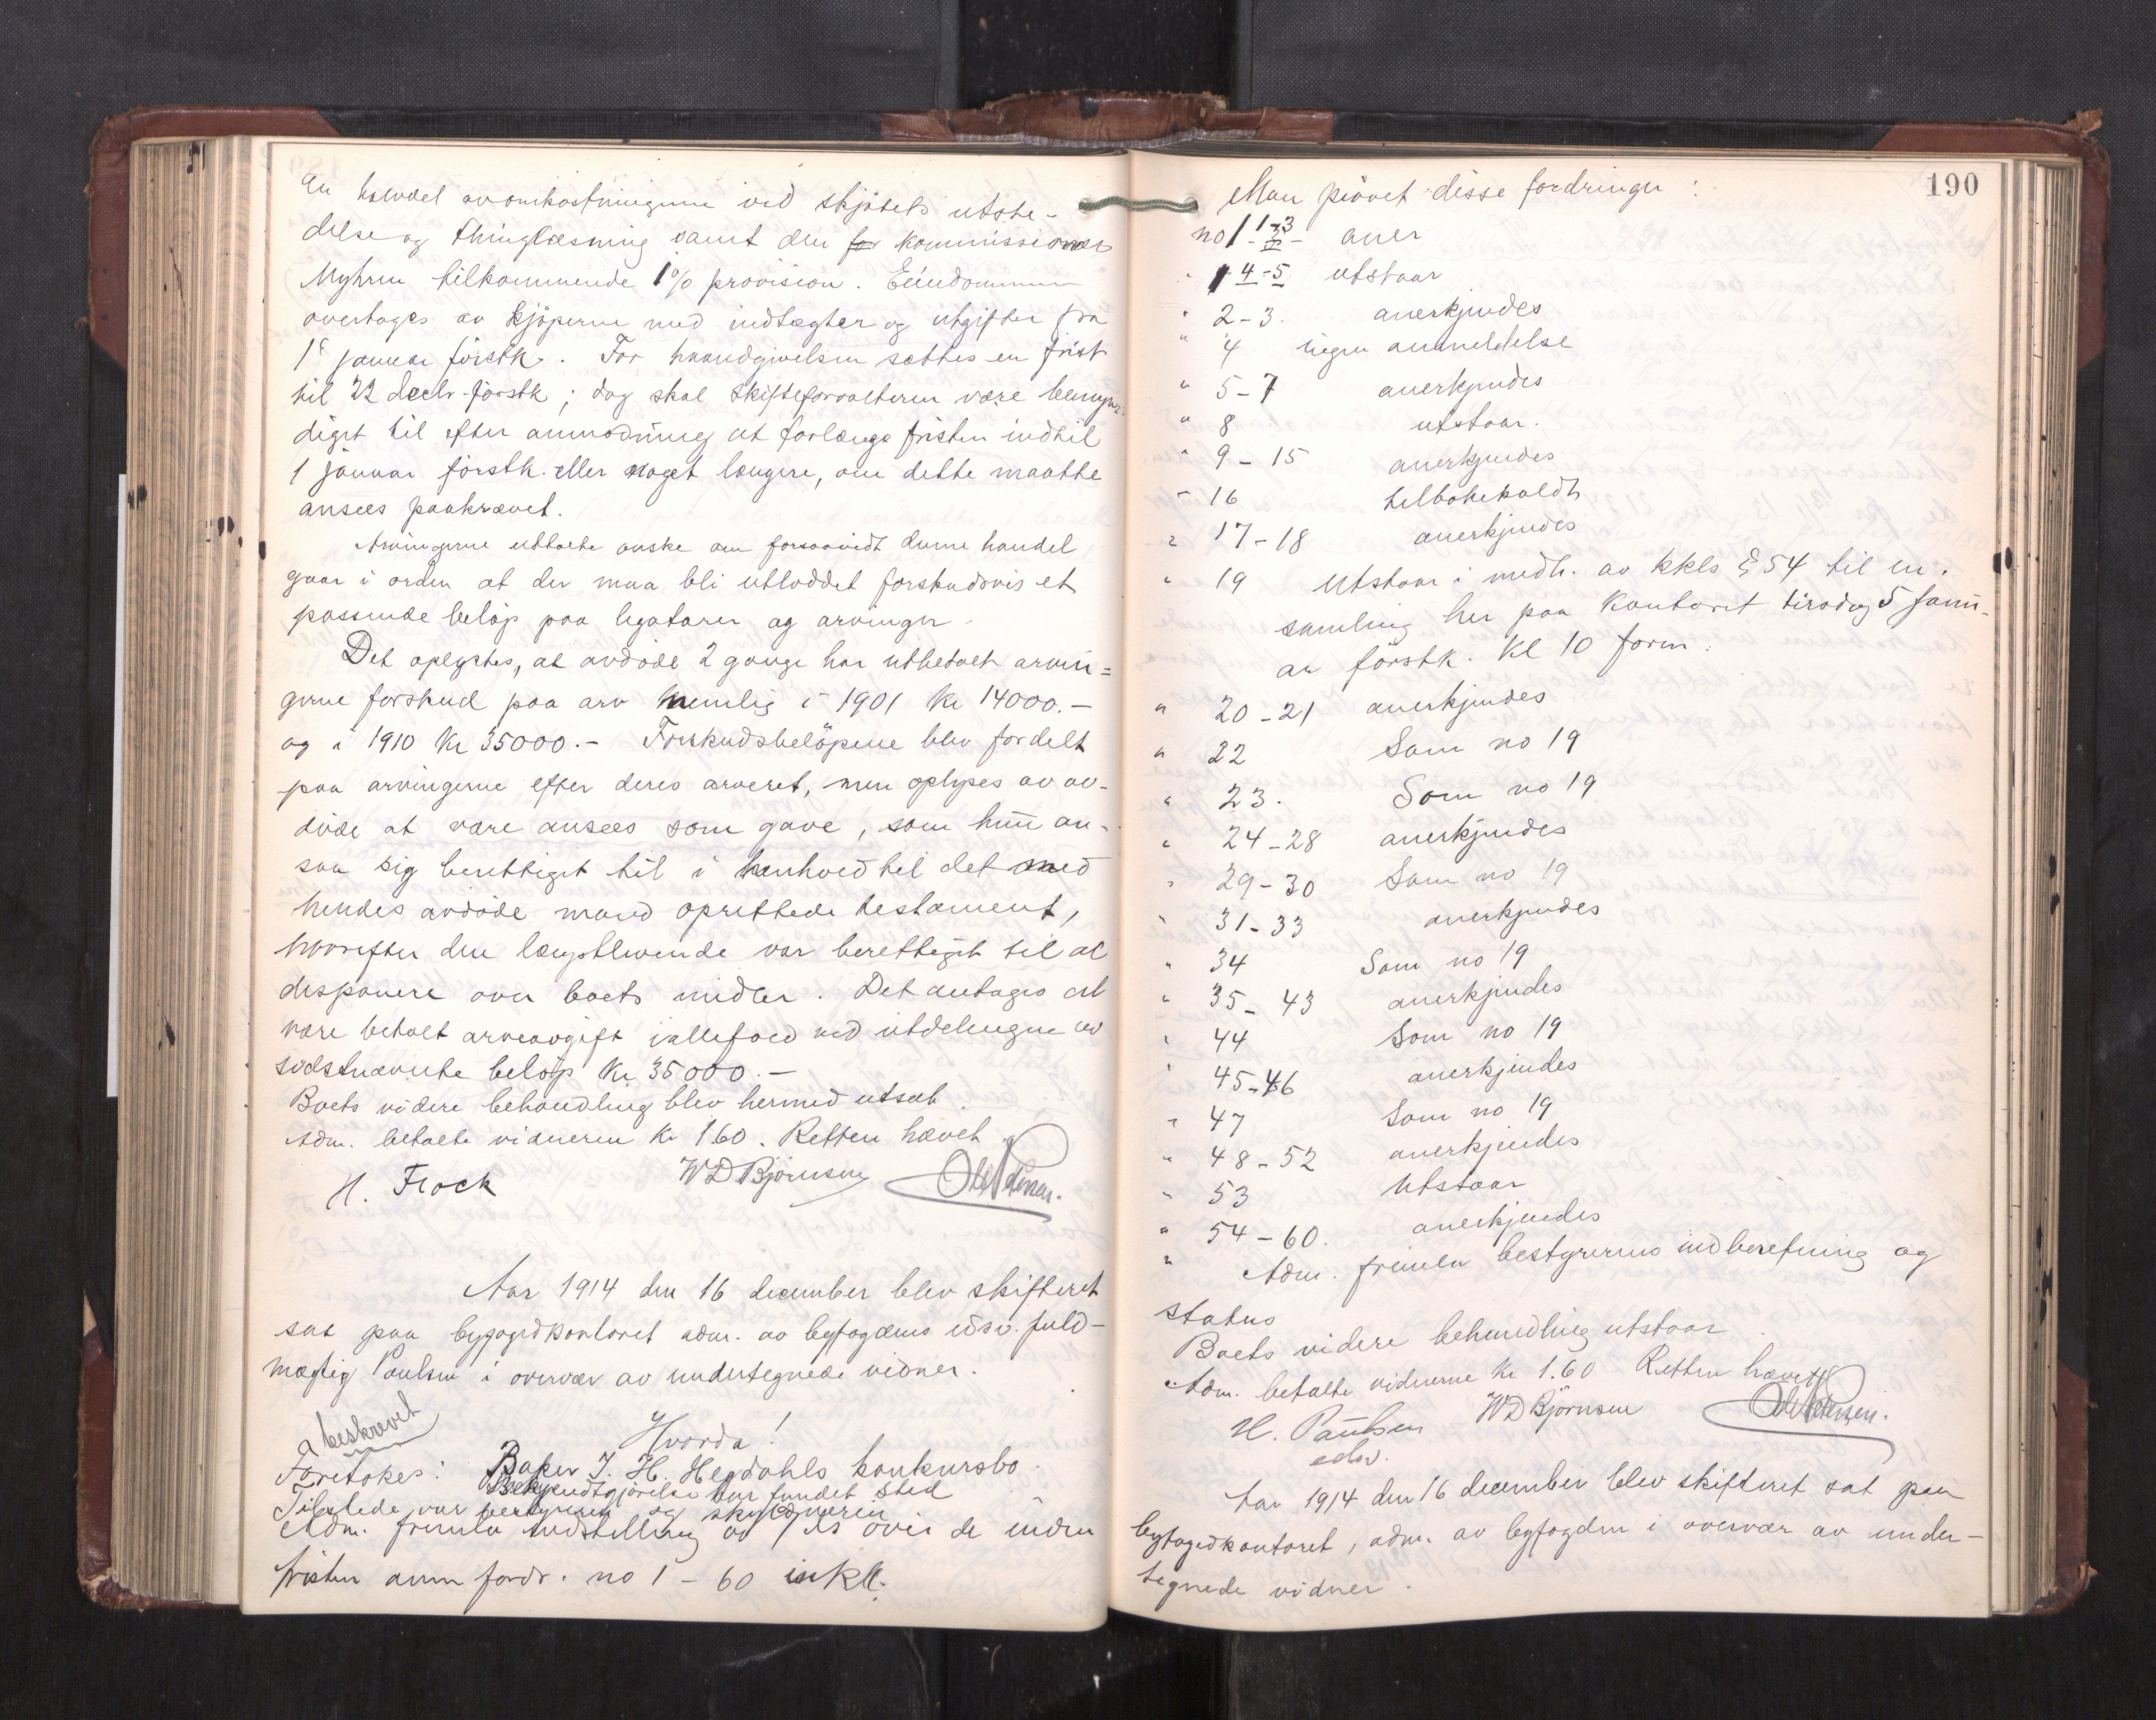 en halvdel av omkostningerne ved skjötets utste-
delse og thinglæsning samt den for kommissionær
Myhren tilkommende 1% provision. Eiendommen
overtages av kjöperne med indtægter og utgifter fra
1e januar förstk. For haandgivelsen sættes en frist
til 22 decbr förstk; dog skal skifteforvalteren være bemyn-
diget til efter anmodning at forlænge fristen indtil
1 januar förstk. eller noget længere, om dette maatte
ansees paakrævet.
Arvingerne uttalte önske om forsaavidt denne handel
gaar i orden at der maa bli utloddet forskudsvis et
passende belöp paa legatarer og arvinger.
Det oplystes, at avdöde 2 gange har utbetalt arvin=
gerne forskud paa arv nemlig i 1901 kr 14000.-
og i 1910 Kr 35000.- Forskudsbelöpene blev fordelt
paa arvingerne efter deres arveret, men oplyses av av-
döde at være ansees som gave, som hun an-
saa sig berettiget til i henhold til det med
hendes avdöde mand oprettede testament,
hvorefter den længstlevende var berettiget til at
disponere over boets midler. Det antages at
være betalt arveavgift ialfald ved utdelingen av
sidstnævnte belöp Kr 35000.-
Boets videre behandling blev hermed utsat.
Adm. betalte vidnerne Kr 1.60. Retten hævet.
H. Flock WD Björnsen
Aar 1914 den 16 december blev skifteret
sat paa byfogedkontoret adm. av byfogdens edsv. fuld-
mægtig Paulsen i overvær av undertegnede vidner.
beskrevet
Hvorda!
Foretokes: Baker J. H. Hegdahls konkursbo.
Bekjendtgjörelse har fundet sted
Tilstede var bestyreren og skyldneren
Adm. fremla indstilling av 7 ds over de inden
fristen anm fordr. no 1 - 60 inkl.
190
Man prövet disse fordringer:
no 1 1-3 aner
" 1 4-5 utstaar
" 2-3. anerkjendes
" 4 ingen anmeldelse
" 5-7 anerkjendes
" 8 utstaar.
" 9-15 anerkjendes
" 16 tilbakekaldt
" 17-18 anerkjendes
" 19 Utstaar i medh. av kkls § 54 til en
samling her paa kontoret tirsdag 5 janu-
ar förstk. Kl 10 form.
" 20-21 anerkjendes
" 22 Som no 19
" 23. Som no 19
" 24-28 anerkjendes
" 29-30 Som no 19
" 31-33 anerkjendes
" 34 Som no 19
" 35-43 anerkjendes
" 44 Som no 19
" 45-46 anerkjendes
" 47 Som no 19
" 48-52 anerkjendes
" 53 Utstaar
" 54-60. anerkjendes
" Adm. fremla bestyrerens indberetning og
status
Boets videre behandling utstaar.
Adm. betalte vidnerne Kr 1.60 Retten hævet
H. Paulsen WD Björnsen
edsv.
Aar 1914 den 16 december blev skifteret sat paa
byfogedkontoret, adm. av byfogden i overvær av under-
tegnede vidner.